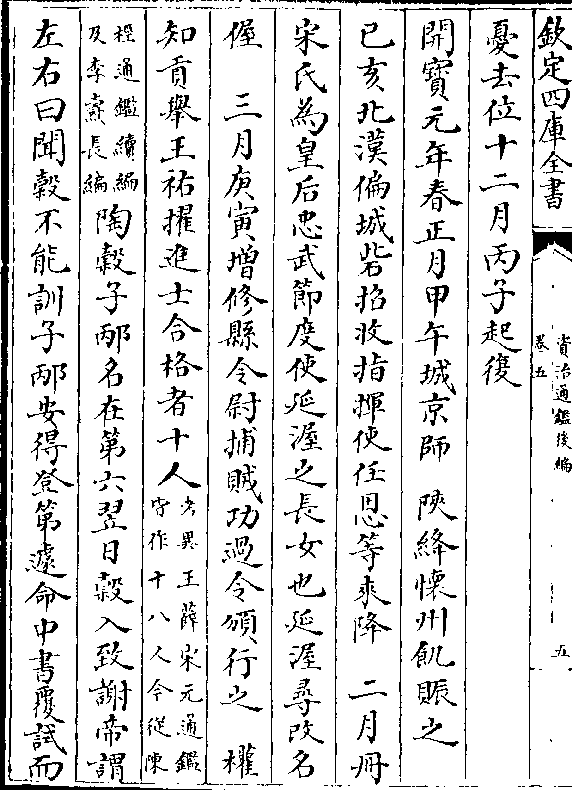 欽定四庫全書
資治通鑑後編
卷五
五
憂去位十二月丙子起復
開寶元年春正月甲午城京師　陝絳懷州飢賑之
己亥北漢偏城砦招收指揮使任恩等來降　二月冊
宋氏為皇后忠武節度使延渥之長女也延渥尋改名
偓　三月庚寅增修縣令尉捕賊功過令頒行之　權
知貢舉王祐擢進士合格者十人考異王薛宋元通鑑皆作十八人今從陳
桱通鑑續編及李燾長編陶穀子邴名在第六翌日穀入致謝帝謂
左右曰聞穀不能訓子邴安得登第遽命中書覆試而